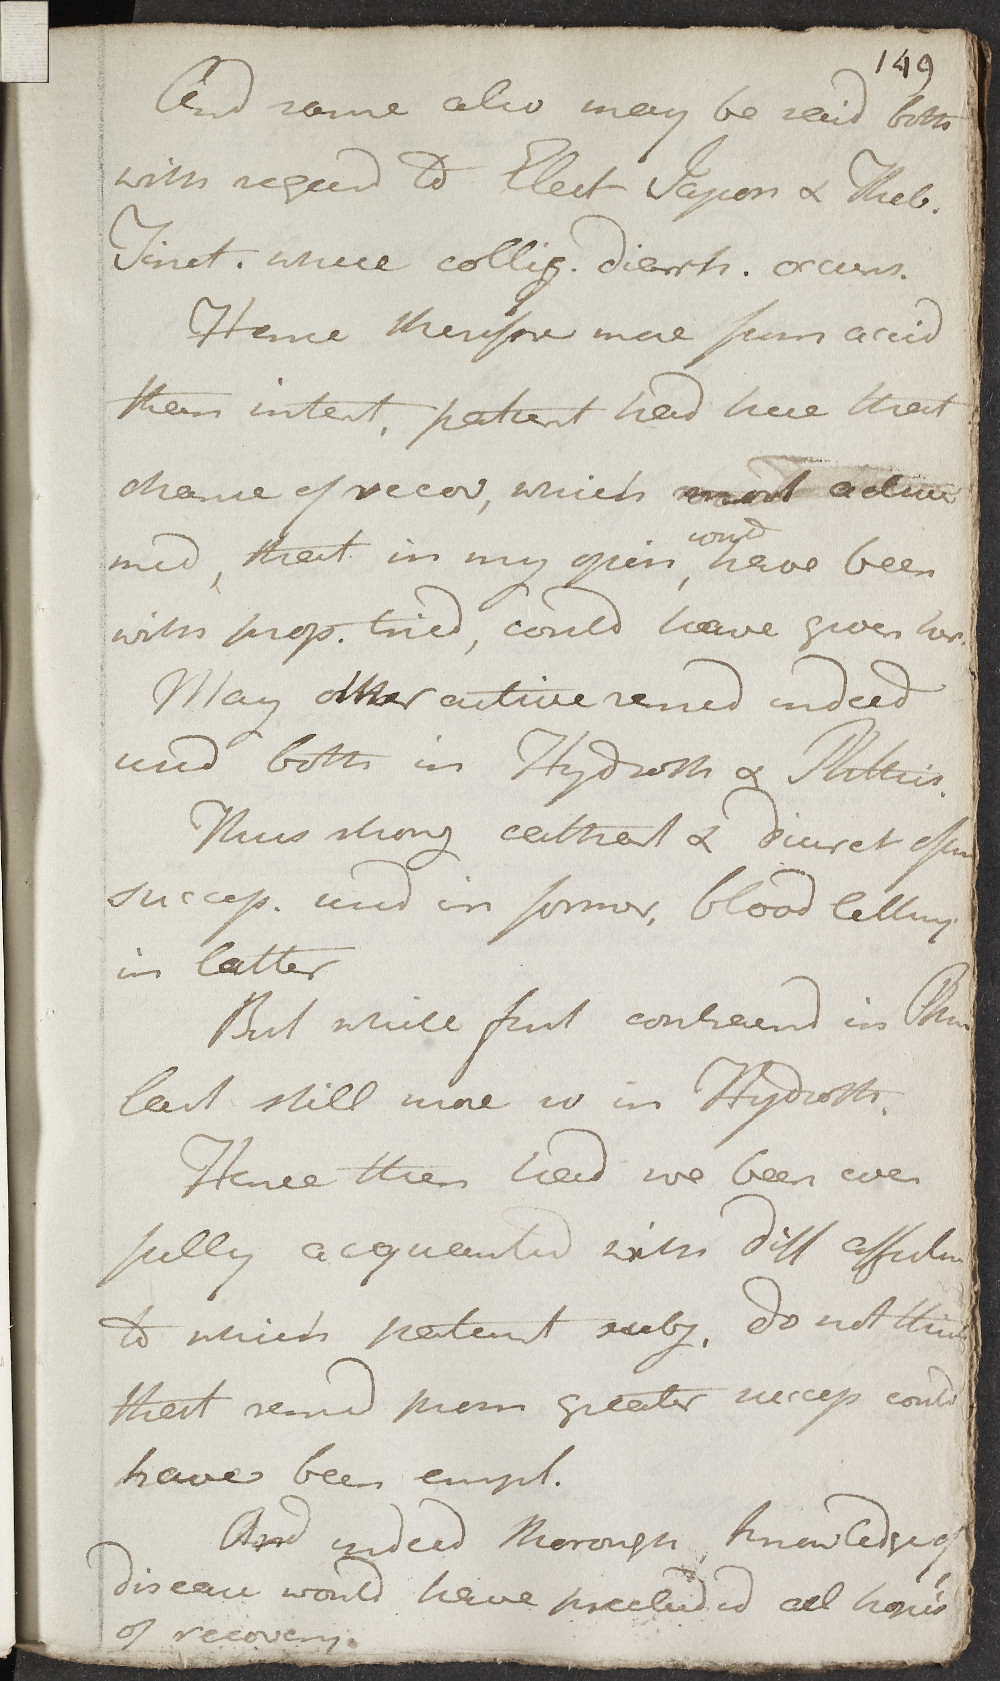 149
And same also may be said both
with regard to Elect Japon & Theb.
Tinct. where colliq. diarrh. occurs.
Hence therefore more from accid
than intent, patient had here that
chance of recov, which most active
med, that in my opin, would have been
with prop. tried, could have given her.
May other active remed indeed
used both in Hydroth & Phthisis.
Thus strong cathart & diuret often
success. used in former, blood letting
in latter
But while first contraind in Phth
last still more so in Hydroth.
Hence then had we been even
fully acquainted with diff affection
to which patient subj. do not think
that remed prom greater success could
have been empl.
And indeed thorough knowledge of
disease would have precluded all hopes
of recovery.